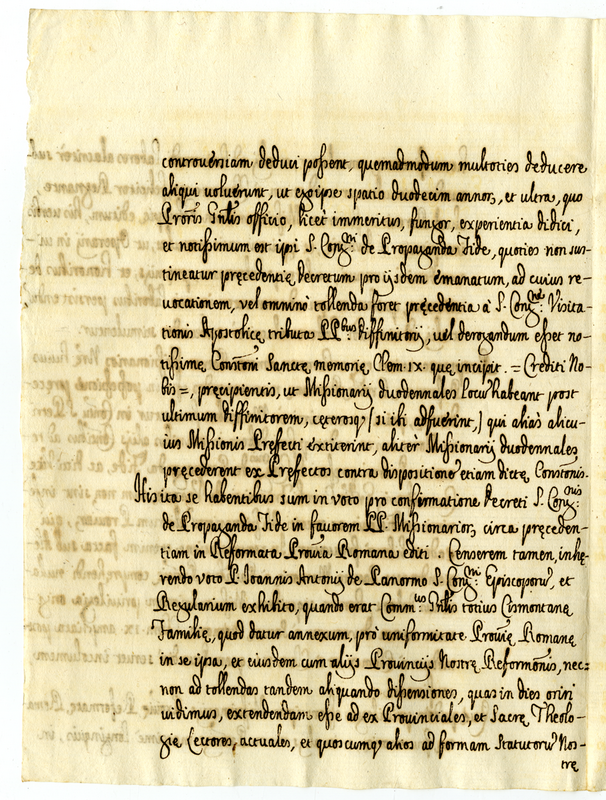 controuersiam deduci possent, quemadmodum multoties deducere
aliqui uoluerunt, ut ex ipse spatio duodecim annor;, et ultra, quo
Proris Gnlis officio, licet immeritus, fungor, experientia didici,
et notissimum est ipsi S. Congni de Propaganda Fide, quoties non sus-
tineatur pręcedentię decretum pro ijsdem emanatum, ad cuius re-
uocationem, vel omnino tollenda foret pręcedentia à S. Congne: Visita-
tionis Apostolicę tributa PP.bus Diffinitorij, uel derogandum esset no-
tissimę Constoni Sanctę memorię Clem. IX. quę incipit. = Crediti No-
bis =, pręcipientis, ut Missionarij duodennales locū habeant post
ultimum diffinitorem, cęterosq; (si ibi adfuerint,) qui aliàs alicu-
ius Missionis Pręfecti extiterint, alitèr Missionarij duodennales
pręcederent ex Pręfectos contra dispositionē etiam dictę Constonis.
His ita se habentibus sum in voto pro confirmatione decreti S. Congnis:
de Propaganda Fide in fauorem PP. Missionarior; circa pręceden-
tiam in Reformata Prouia Romana editi. Censerem tamen, inhę-
rendo voto P. Ioannis Antonij de Panormo S. Congni: Episcoporū, et
Regularium exhibito, quando erat Commus Gnlis totius Cismontanę
Familię, quod datur annexum, pro uniformitate Prouię Romanę
in se ipsa, et eiusdem cum alijs Prouincijs Nostrę Reformonis, nec-
non ad tollendas tandem aliquando dissensiones, quas in dies oriri
uidimus, extendendam esse ad ex Prouinciales, et Sacrę Theolo-
gię Lectores, actuales, et quoscumq; alios ad formam Statutorū Nos-
trę